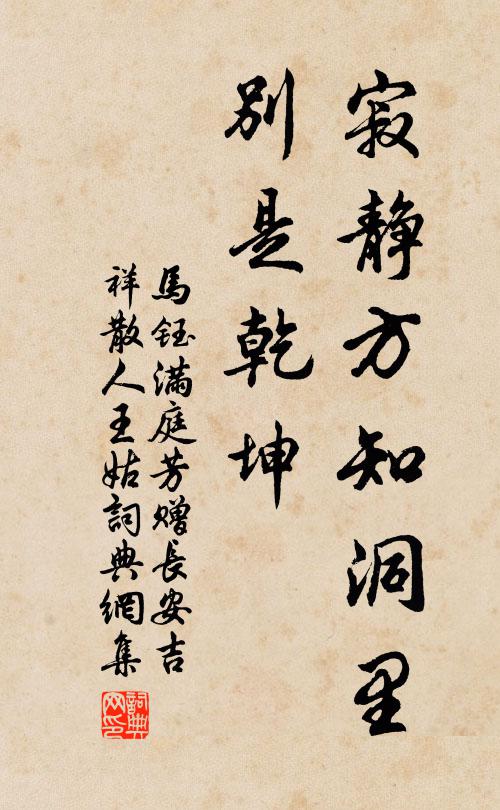 寂静方知洞里
别是乾坤
馬鈺滿庭芳贈長安吉
祥散人王姑詞典網集
詞典
网印